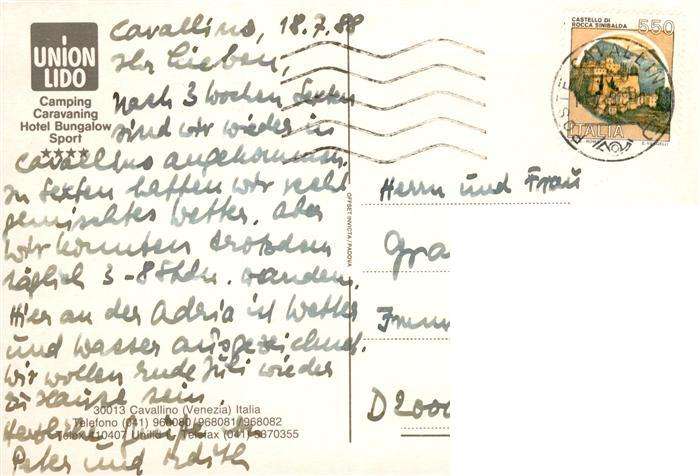 UNION
LIDO
Camping
Caravaning
Hotel Bungalow
Sport
****
Cavallino, 18.7.88
Ihr Lieben,
nach 3 Wochen Sexten
sind wir wieder in
Cavallino angekommen.
In Sexten hatten wir recht
gemischtes Wetter. Aber
wir konnten trotzdem
täglich 3-8 Stdn. wandern.
Hier an der Adria ist Wetter
und Wasser ausgezeichnet.
Wir wollen Ende Juli wieder
zu Hause sein.
Herzliche Grüße
Peter und Edith
30013 Cavallino (Venezia) Italia
Telefono (041) 968080/968081/968082
Telex 410407 Telefax (041) 5370355
OFFSET INVICTA / PADOVA
CASTELLO DI
ROCCA SINIBALDA
550
ITALIA
POSTE CAVALLINO
Herrn und Frau
Gra
D 2000